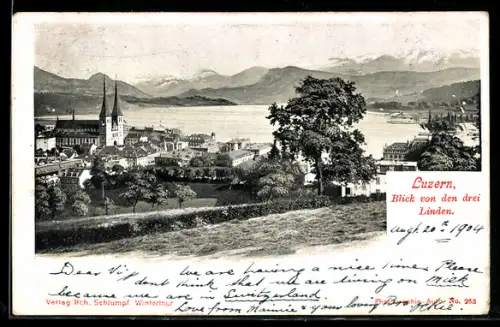 Luzern,
Blick von den drei
Linden.
Augt. 20th 1904
Dear Vi, We are having a nice time. Please
don't think that we are living on Milk
because we are in Switzerland
Love from Mamie & your loving
Verlag Hch. Schlumpf Winterthur
No. 253